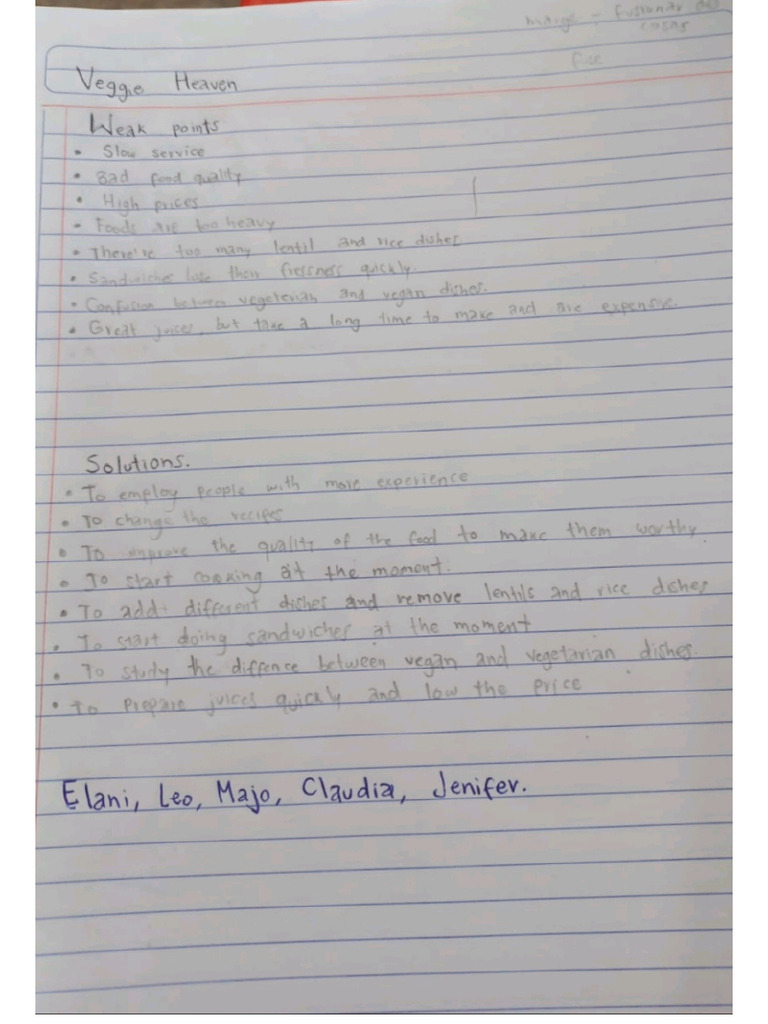 merge - fusionar dos
cosas
Veggie Heaven
Weak points
• Slow service
• Bad food quality
• High prices
• Foods are too heavy
• There're too many lentil and rice dishes
• Sandwiches lose then fressness quickly.
• Confusion between vegeterian and vegan dishes.
• Great juices, but take a long time to make and are expensive.
Solutions.
• To employ people with more experience
• To change the recipes
• To improve the quality of the food to make them worthy.
• To start cooking at the moment.
• To add different dishes and remove lentils and rice dishes
• To start doing sandwiches at the moment
• To study the diffence between vegan and vegetarian dishes.
• To prepare juices quickly and low the price
Elani, Leo, Majo, Claudia, Jenifer.